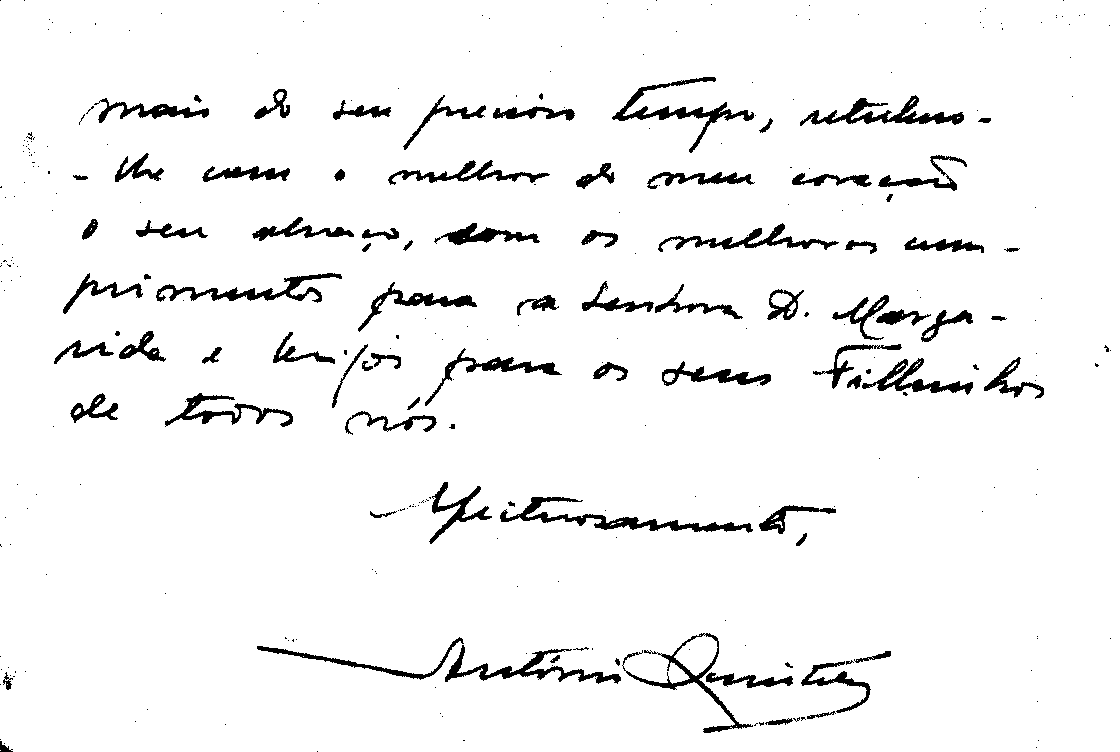 mais do seu precioso tempo, retribuo-
-lhe com o melhor do meu coração
o seu abraço, com os melhores cum-
primentos para a Senhora D. Marga-
rida e beijos para os seus Filhinhos
de todos nós.
Afectuosamente,
António